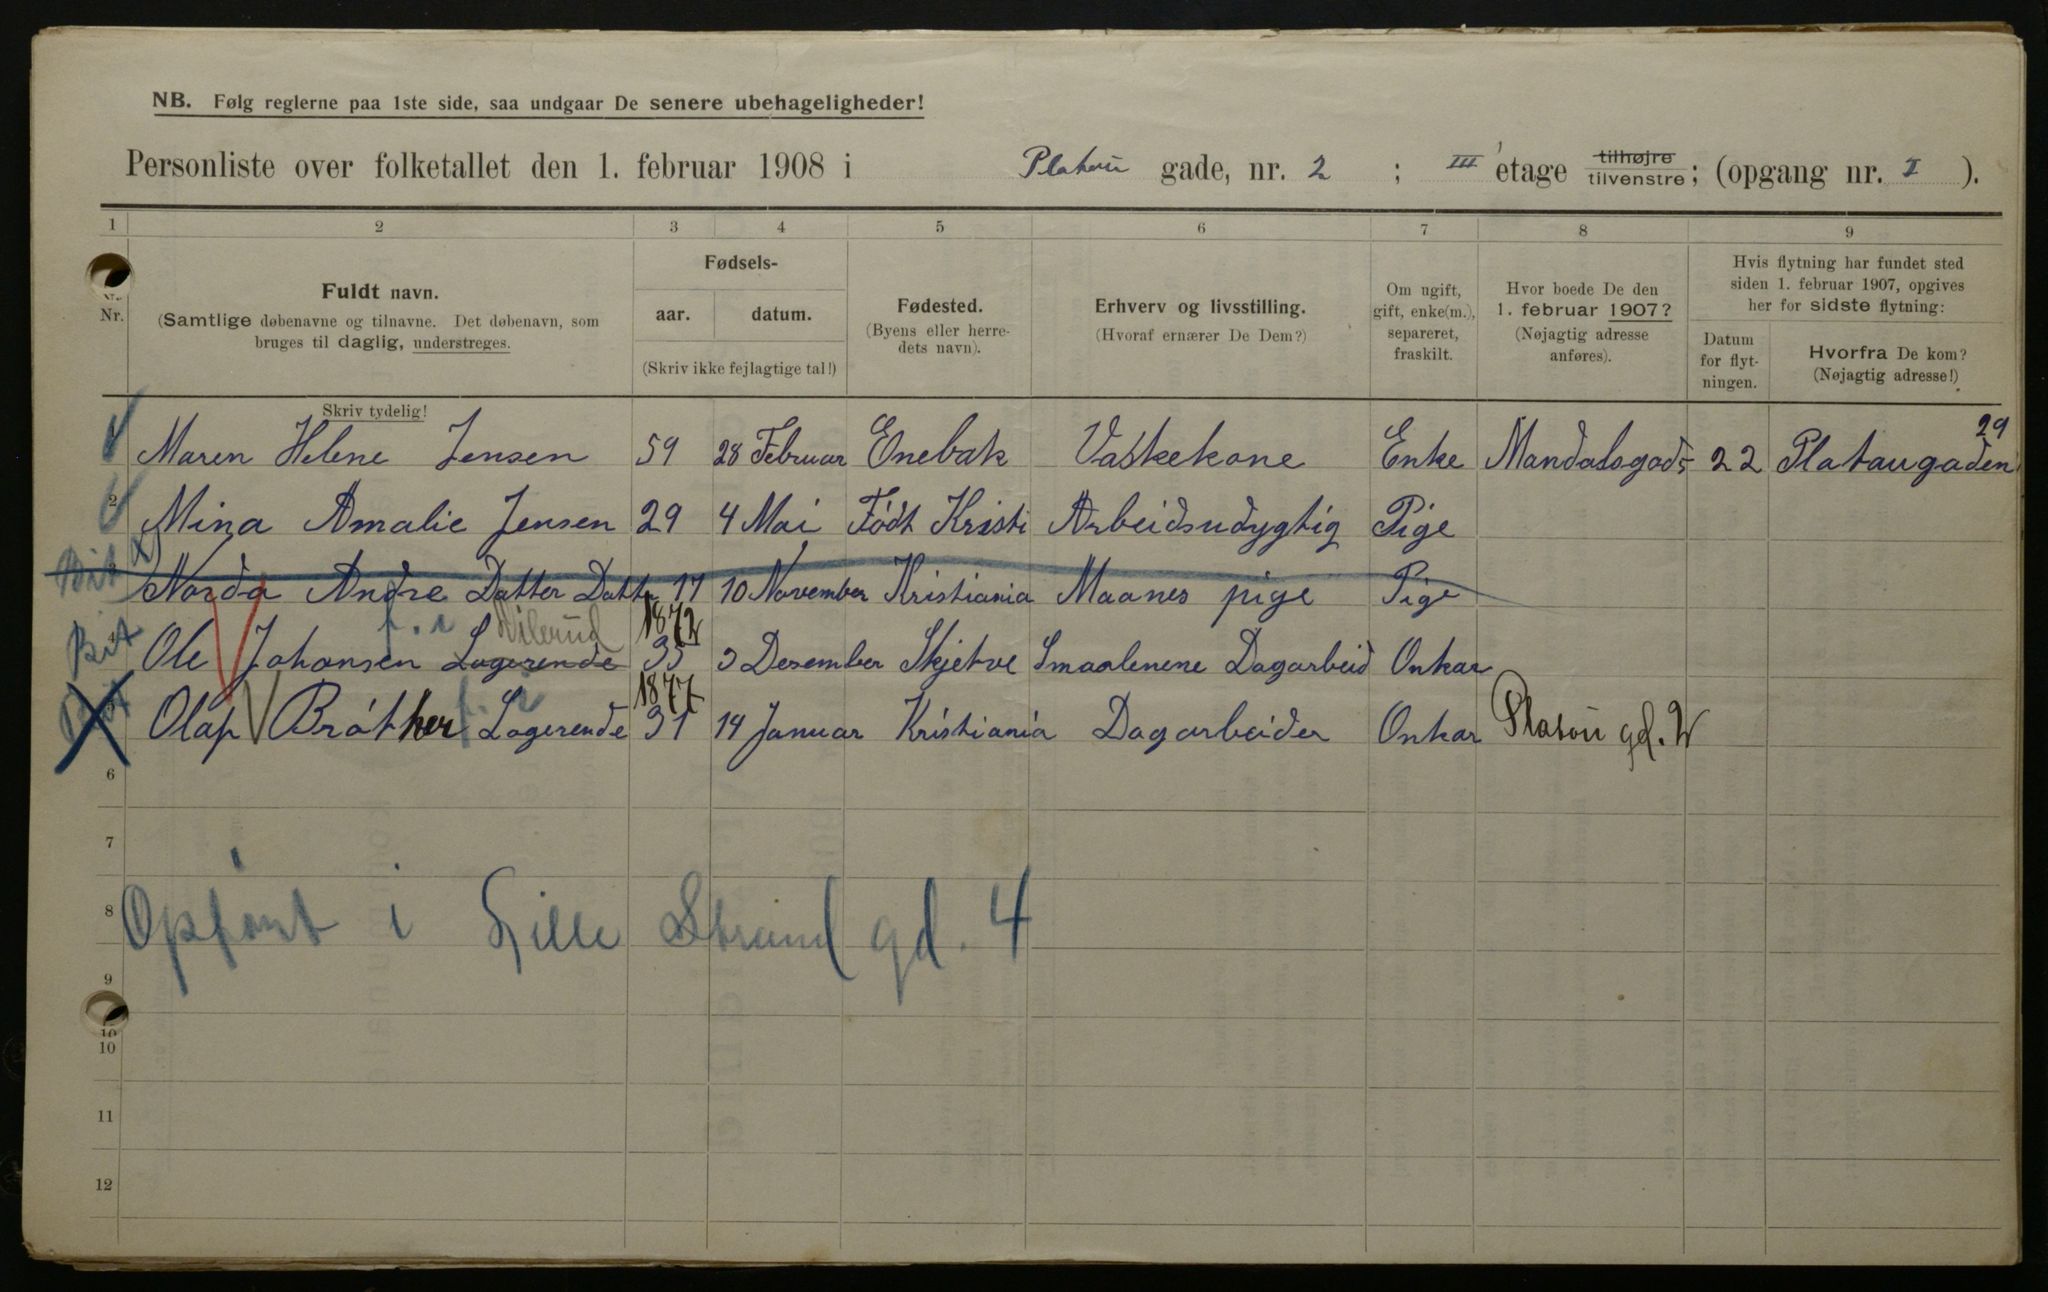 NB. Følg reglerne paa 1ste side, saa undgaar De senere ubehageligheder!
Personliste over folketallet den 1. februar 1908 i Platou gade, nr. 2 ; III etage tilhøjre tilvenstre; (opgang nr. I ).
1 2 3 4 5 6 7 8 9
Nr.
Fuldt navn.
(Samtlige døbenavne og tilnavne. Det døbenavn, som
bruges til daglig, understreges.
Skriv tydelig!
Fødsels-
aar. datum.
(Skriv ikke fejlagtige tal!)
Fødested.
(Byens eller herre-
dets navn).
Erhverv og livsstilling.
(Hvoraf ernærer De Dem?)
Om ugift,
gift, enke(m.),
separeret,
fraskilt.
Hvor boede De den
1. februar 1907?
(Nøjagtig adresse
anføres).
Hvis flytning har fundet sted
siden 1. februar 1907, opgives
her for sidste flytning:
Datum
for flyt-
ningen.
Hvorfra De kom?
(Nøjagtig adresse!)
29
Maren Helene Jensen 59 28 Februar Enebak Vaskekone Enke Mandalsgade 22 Plataugaden
2 Mina Amalie Jensen 29 4 Mai Födt Kristi Arbeidsudygtig Pige
Bit Norda Andre Datter Datter 17 10 November Kristiania Maanes pige Pige
1872
4 Bit Ole Johansen Lagerende 35 3 Desember Skjetve Smaalenene Dagarbeid Onkar
1877
Olaf Bröther Logerende 31 14 Januar Kristiania Dagarbeider Onkar Platou gd. 2
6
7
8 Opfört i Lille Strand gd. 4
9
10
10
11
12